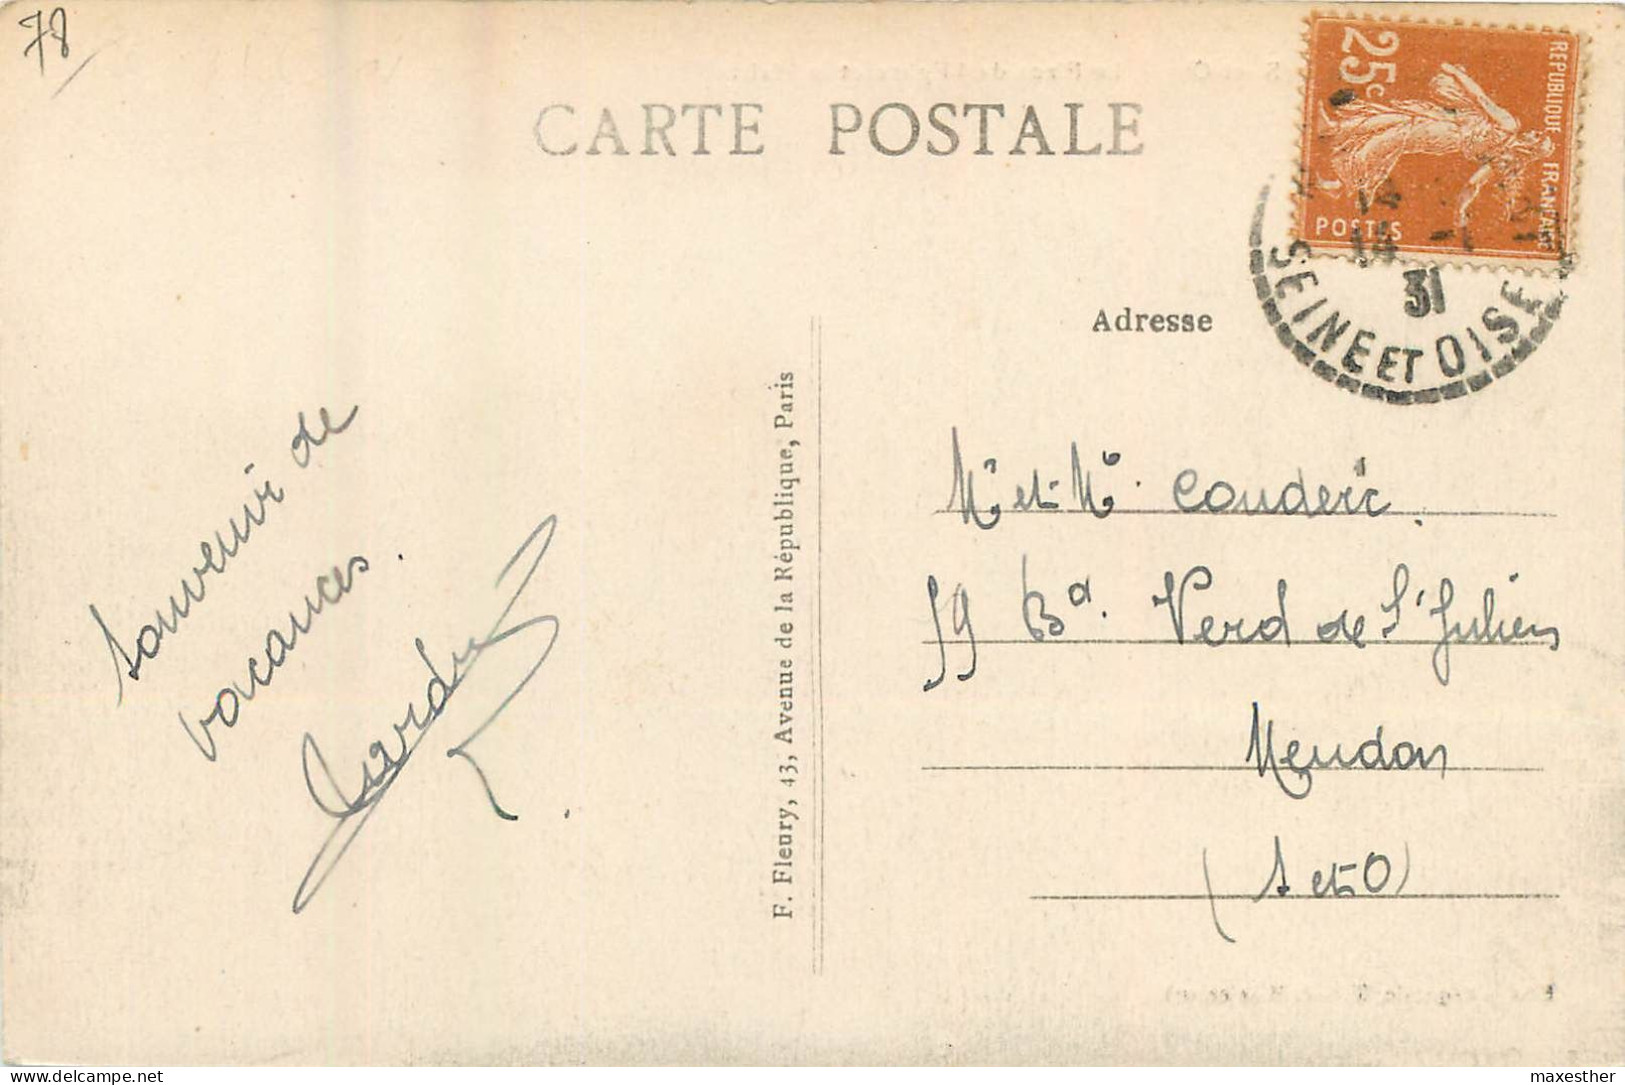 78
CARTE POSTALE
25c
REPUBLIQUE FRANÇAISE
POSTES
14
31
SEINE ET OISE
Adresse
Souvenir de
vacances.
F. Fleury, 43, Avenue de la République, Paris
Mr et Me Couderc.
59 Bd. Verd de St Julien
Meudon
(S et O)
maxesther